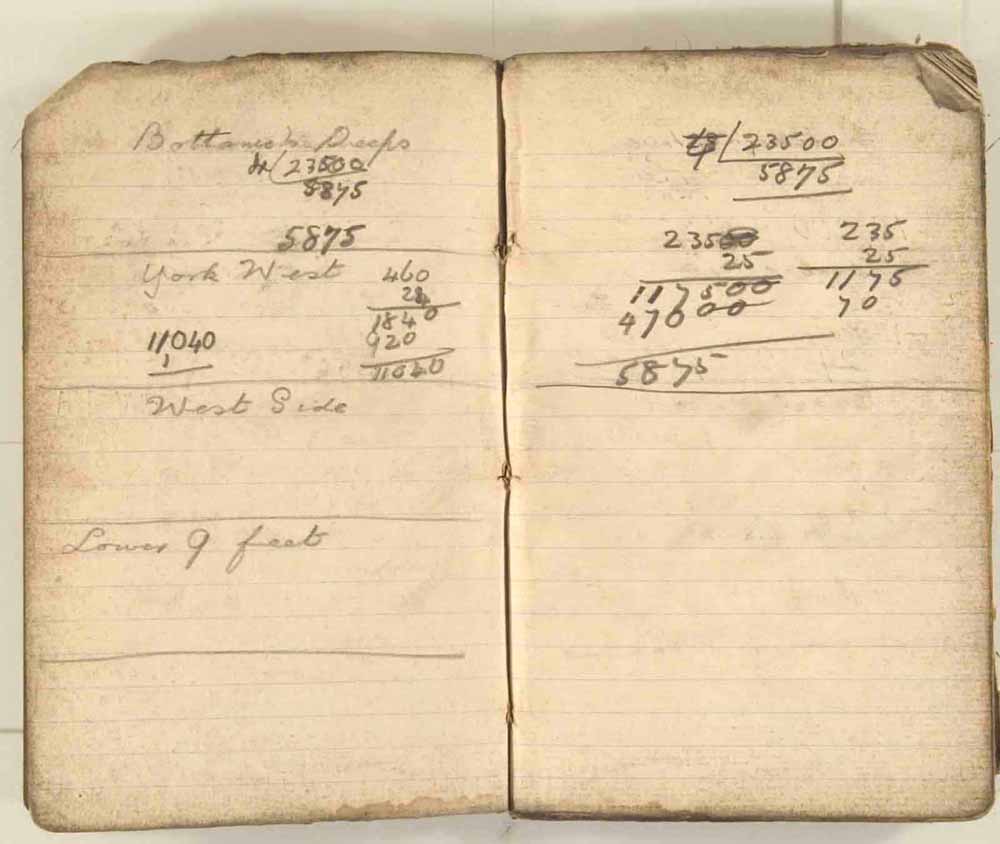 Deeps
4 23500
5875
5875
York West 460
24
1840
11040 920
11040
West Side
Lower 9 feet
23500
5875
23500 235
25 25
117500 1175
47000 70
5875